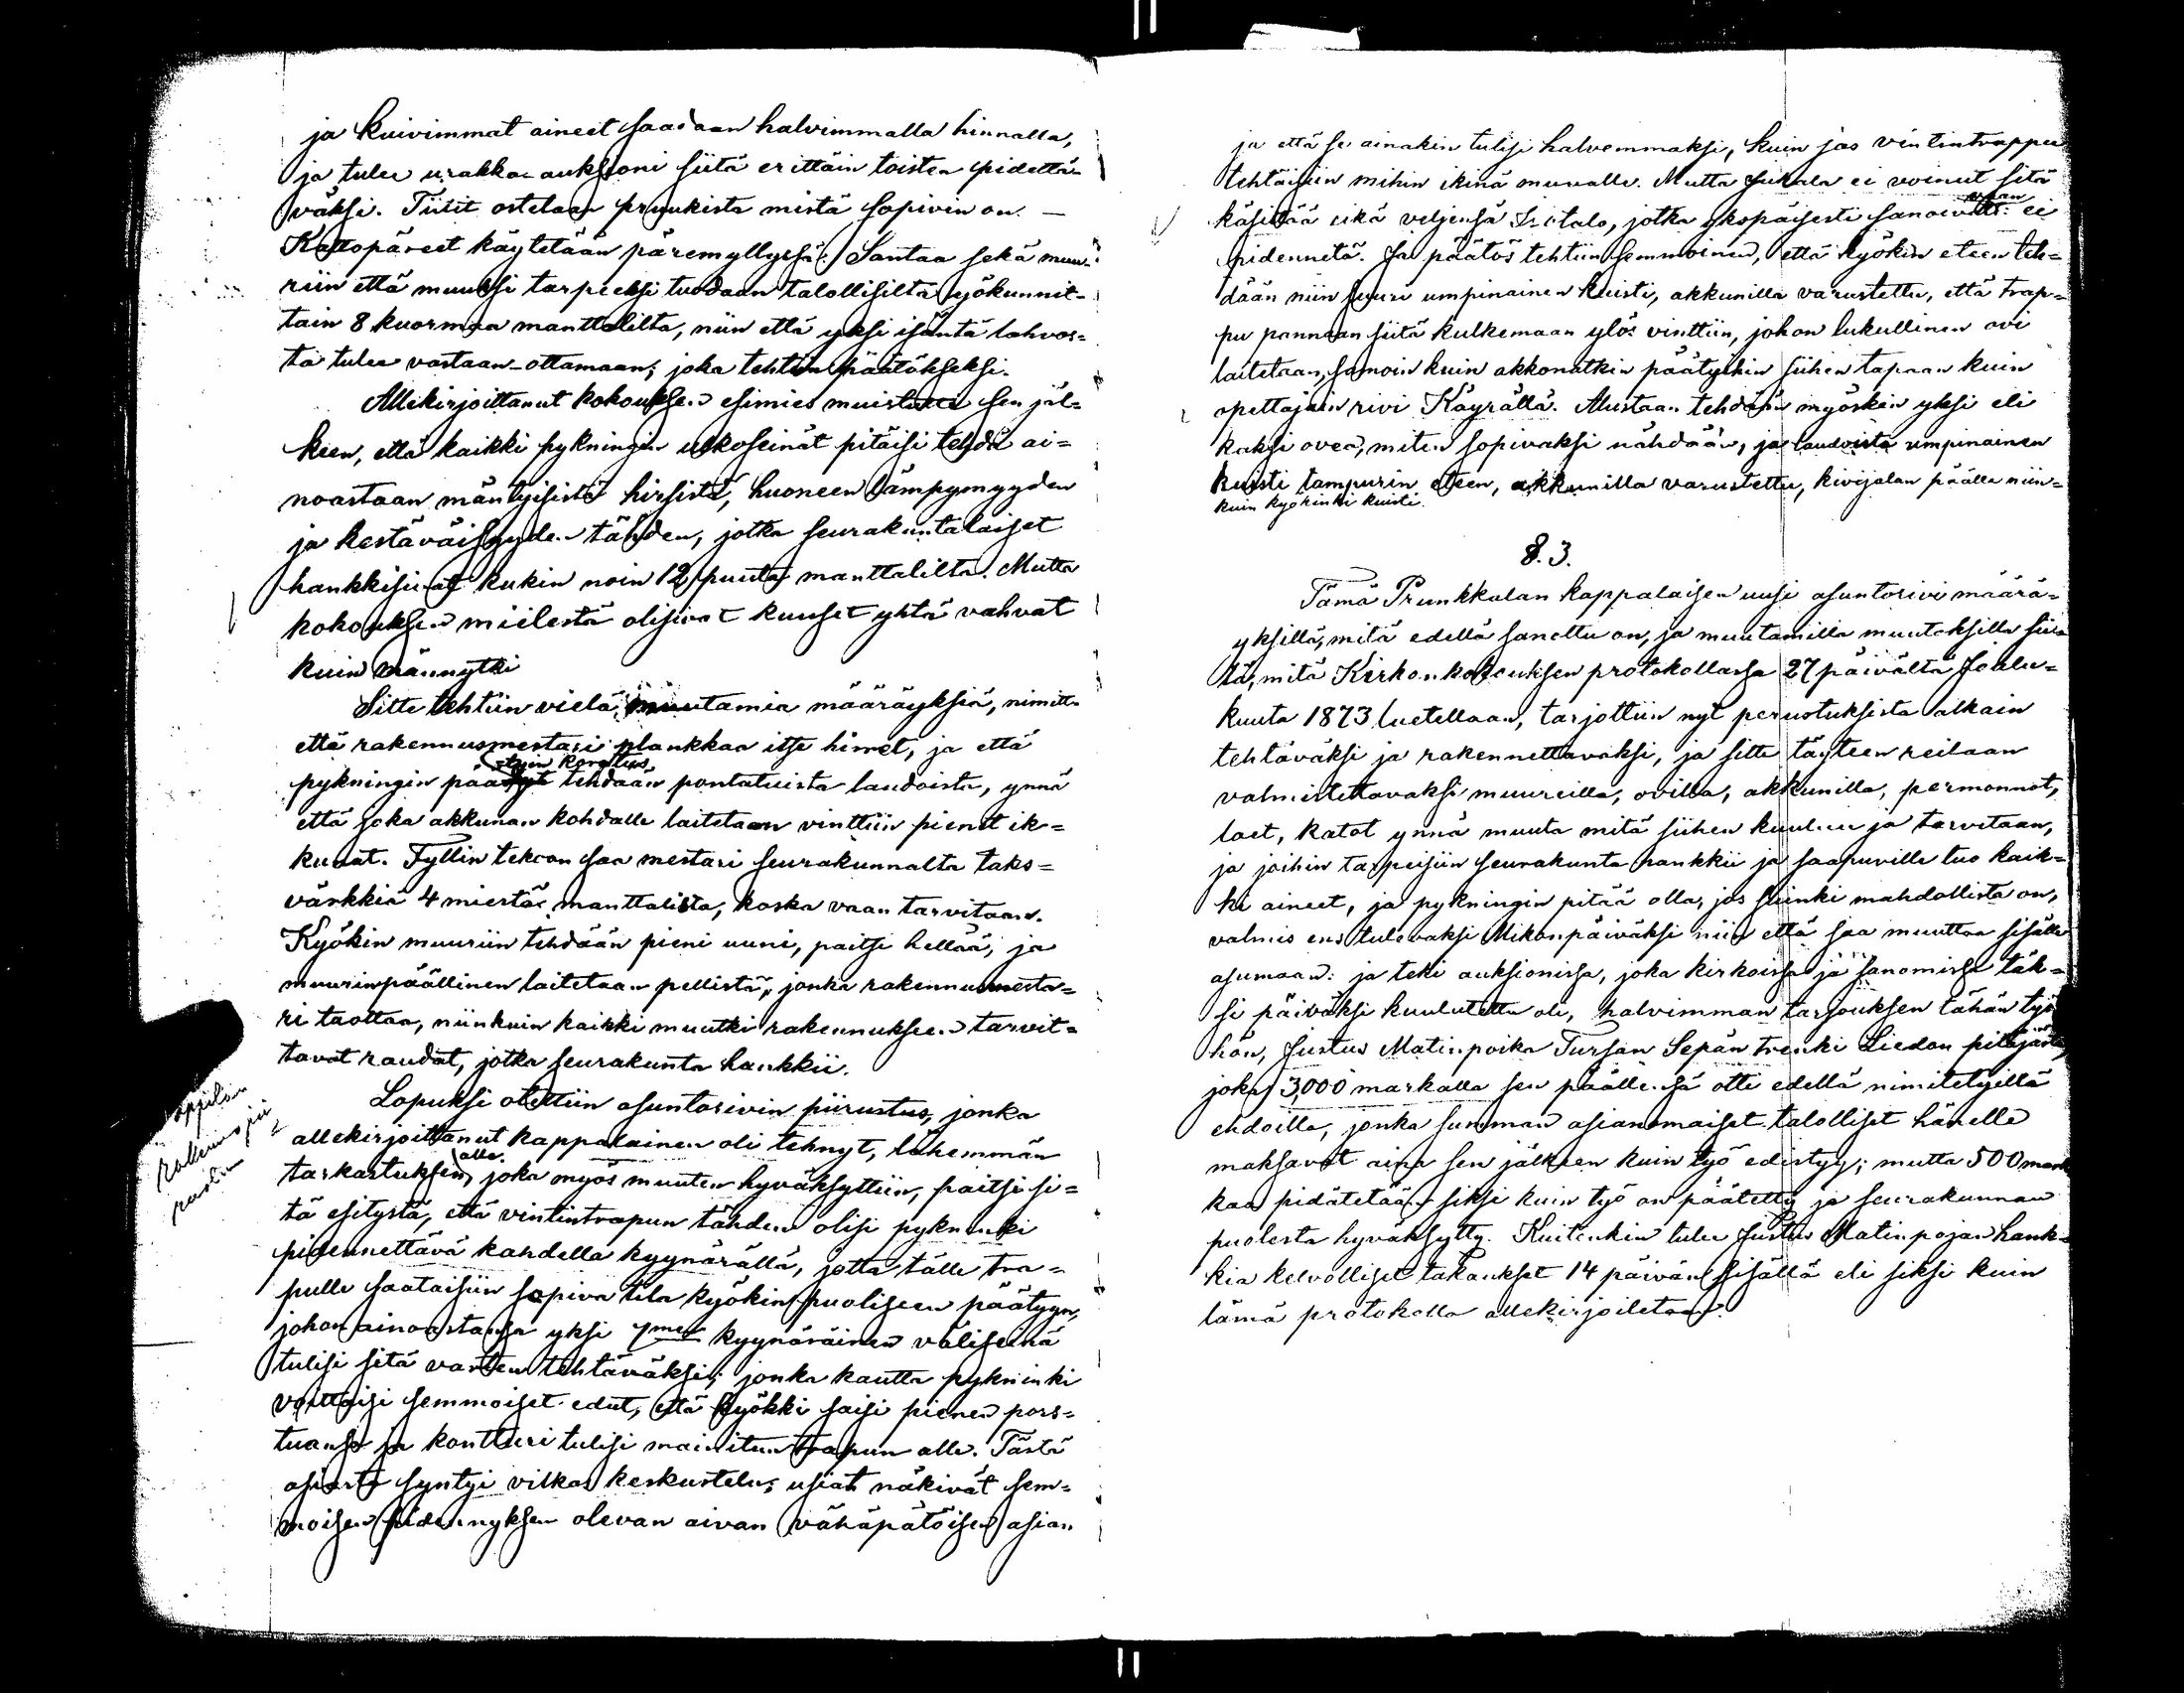 ja kuivimmat aineet saadaan halvimmalla hinnalla,
ja tulee urakka auksioni siitä erittäin toisten pidettä-
väksi. Tiilit ostetaan pruukista mistä sopivin on. —
Kattopäreet käytetään päremyllyssä. Santaa sekä muu-
riin että muuksi tarpeeksi tuodaan talollisilta syökunnit-
tain 8 kuormaa manttalilta, niin että yksi isäntä lahvos-
ta tulee vastaan-ottamaan; joka tehtiin päätökseksi.
Allekirjoittanut kokouksen esimies muistutti sen jäl=
keen, että kaikki pykningin ulkoseinät pitäisi tehdä ai=
noastaan mäntyisistä hirsistä, huoneen lämpymyyden
ja kestäväisyyden tähden, jotka seurakuntalaiset
hankkisivat kukin noin 12 puuta manttalilta. Mutta
kokouksen mielestä olisivat kuuset yhtä vahvat
kuin männytki
Sitte tehtiin vielä muutamia määräyksiä, nimitt.
että rakennusmestari plankkaa itse hirret, ja että
tyin korotus
pykningin päädyt tehdään pontatuista laudoista, ynnä
että joka akkunan kohdalle laitetaan vinttiin pienet ik=
kunat. Fyllin tekoon saa mestari seurakunnalta taks=
värkkiä 4 miestä manttalista, koska vaan tarvitaan.
Kyökin muuriin tehdään pieni uuni, paitsi hellää, ja
muurinpäällinen laitetaan pellistä, jonka rakennusmesta=
ri taottaa, niinkuin kaikki muutki rakennukseen tarvit=
tavat raudat, jotka seurakunta hankkii.
Lopuksi otettiin asuntorivin piirustus, jonka
allekirjoittanut kappalainen oli tehnyt, lähemmän
tarkastuksen alle, joka myös muuten hyväksyttiin, paitsi si=
tä esitystä, että vintintrapun tähden olisi pykninki
pidennettävä kahdella kyynärällä, jotta tälle tra=
pulle saataisiin sopiva tila kyökin puoliseen päätyyn,
johon ainoastansa yksi 7men kyynäräinen väliseinä
tulisi sitä varten tehtäväksi; jonka kautta pykninki
voittaisi semmoiset edut, että kyökki saisi pienen pors=
tuansa ja konttuuri tulisi mainitun trapun alle. Tästä
asiasta syntyi vilkas keskustelu; usiat näkivät sem=
moisen pidennyksen olevan aivan vähäpätöisen asian
ja että se ainakin tulisi halvemmaksi, kuin jos vintintrappu
tehtäisiin mihin ikinä muualle. Mutta Jukala ei voinut sitä
käsittää eikä veljensä Isotalo, jotka ykspäisesti sanoivat: ei
pidennetä. Ja päätös tehtiin semmoinen, että kyökin eteen teh=
dään niin suuri umpinainen kuisti, akkunilla varustettu, että trap=
pu pannaan siitä kulkemaan ylös vinttiin, johon lukullinen ovi
laitetaan, samoin kuin akkonatkin päätyihin siihen tapaan kuin
opettajain rivi Käyrällä. Alustaan tehdään myöskin yksi eli
kaksi ovea, miten sopivaksi nähdään, ja laudoista umpinainen
kuisti tampurin eteen, akkunilla varustettu, kivijalan päälle niin=
kuin kyökinki kuisti.
§. 3.
Tämä Prunkkalan kappalaisen uusi asuntorivi määrä=
yksillä, mitä edellä sanottu on, ja muutamilla muutoksilla sii
tä, mitä Kirkonkokouksen protokollassa 27 päivältä Joulu=
kuuta 1873 luetellaan, tarjottiin nyt perustuksista alkain
tehtäväksi ja rakennettavaksi, ja sitte täyteen reilaan
valmistettavaksi muureilla, ovilla, akkunilla, permannot,
laet, katot ynnä muuta mitä siihen kuuluu ja tarvitaan,
ja joihin tarpeisiin seurakunta hankkii ja saapuville tuo kaik=
ki aineet, ja pykningin pitää olla, jos suinki mahdollista on,
valmis ens tulevaksi Mikonpäiväksi niin että saa muuttaa sisälle
asumaan: ja teki auksionissa, joka kirkoissa ja sanomissa täk=
si päiväksi kuulutettu oli, halvimman tarjouksen tähän työ
hön, Justus Matinpoika Tursan Sepän trenki Liedon pitäjästä,
joka 3,000 markalla sen päällensä otti edellä nimitetyillä
ehdoilla, jonka summan asianomaiset talolliset hänelle
maksavat aina sen jälkeen kuin työ edistyy; mutta 500 mark
kaa pidätetään siksi kuin työ on päätetty ja seurakunnan
puolesta hyväksytty. Kuitenkin tulee Justus Matinpojan hank=
kia kelvolliset takaukset 14 päivän sisällä eli siksi kuin
tämä protokolla allekirjoitetaan.